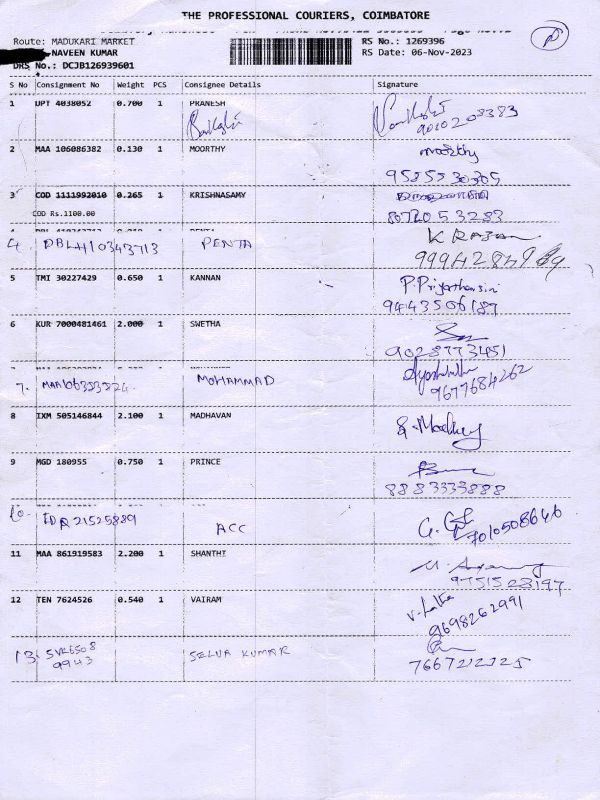 THE PROFESSIONAL COURIERS, COIMBATORE
Route: MADUKARI MARKET
NAVEEN KUMAR
DRS No.: DCJB126939601
RS No.: 1269396
RS Date: 06-Nov-2023
S No Consignment No Weight PCS Consignee Details Signature
1 UPT 4038052 0.700 1 PRANESH
9010203383
2 MAA 106086382 0.130 1 MOORTHY moorthy
9585530305
3 COD 1111992010 0.265 1 KRISHNASAMY
COD Rs.1100.00 8072053283
4. DBLH10343713 PENTA K RAJAN
5 TMI 30227429 0.650 1 KANNAN P.Priyadharsini
9443506189
6 KUR 7000481461 2.000 1 SWETHA
9028773451
7. MAA106353324 MOHAMMAD
9677684262
8 IXM 505146844 2.100 1 MADHAVAN
9 MGD 180955 0.750 1 PRINCE
8883333888
10. IDR21525889 ACC
7010508646
11 MAA 861919583 2.200 1 SHANTHI
9751528197
12 TEN 7624526 0.540 1 VAIRAM V. Latha
9698262991
13. SVK6508 SELVA KUMAR
9943 7667212325